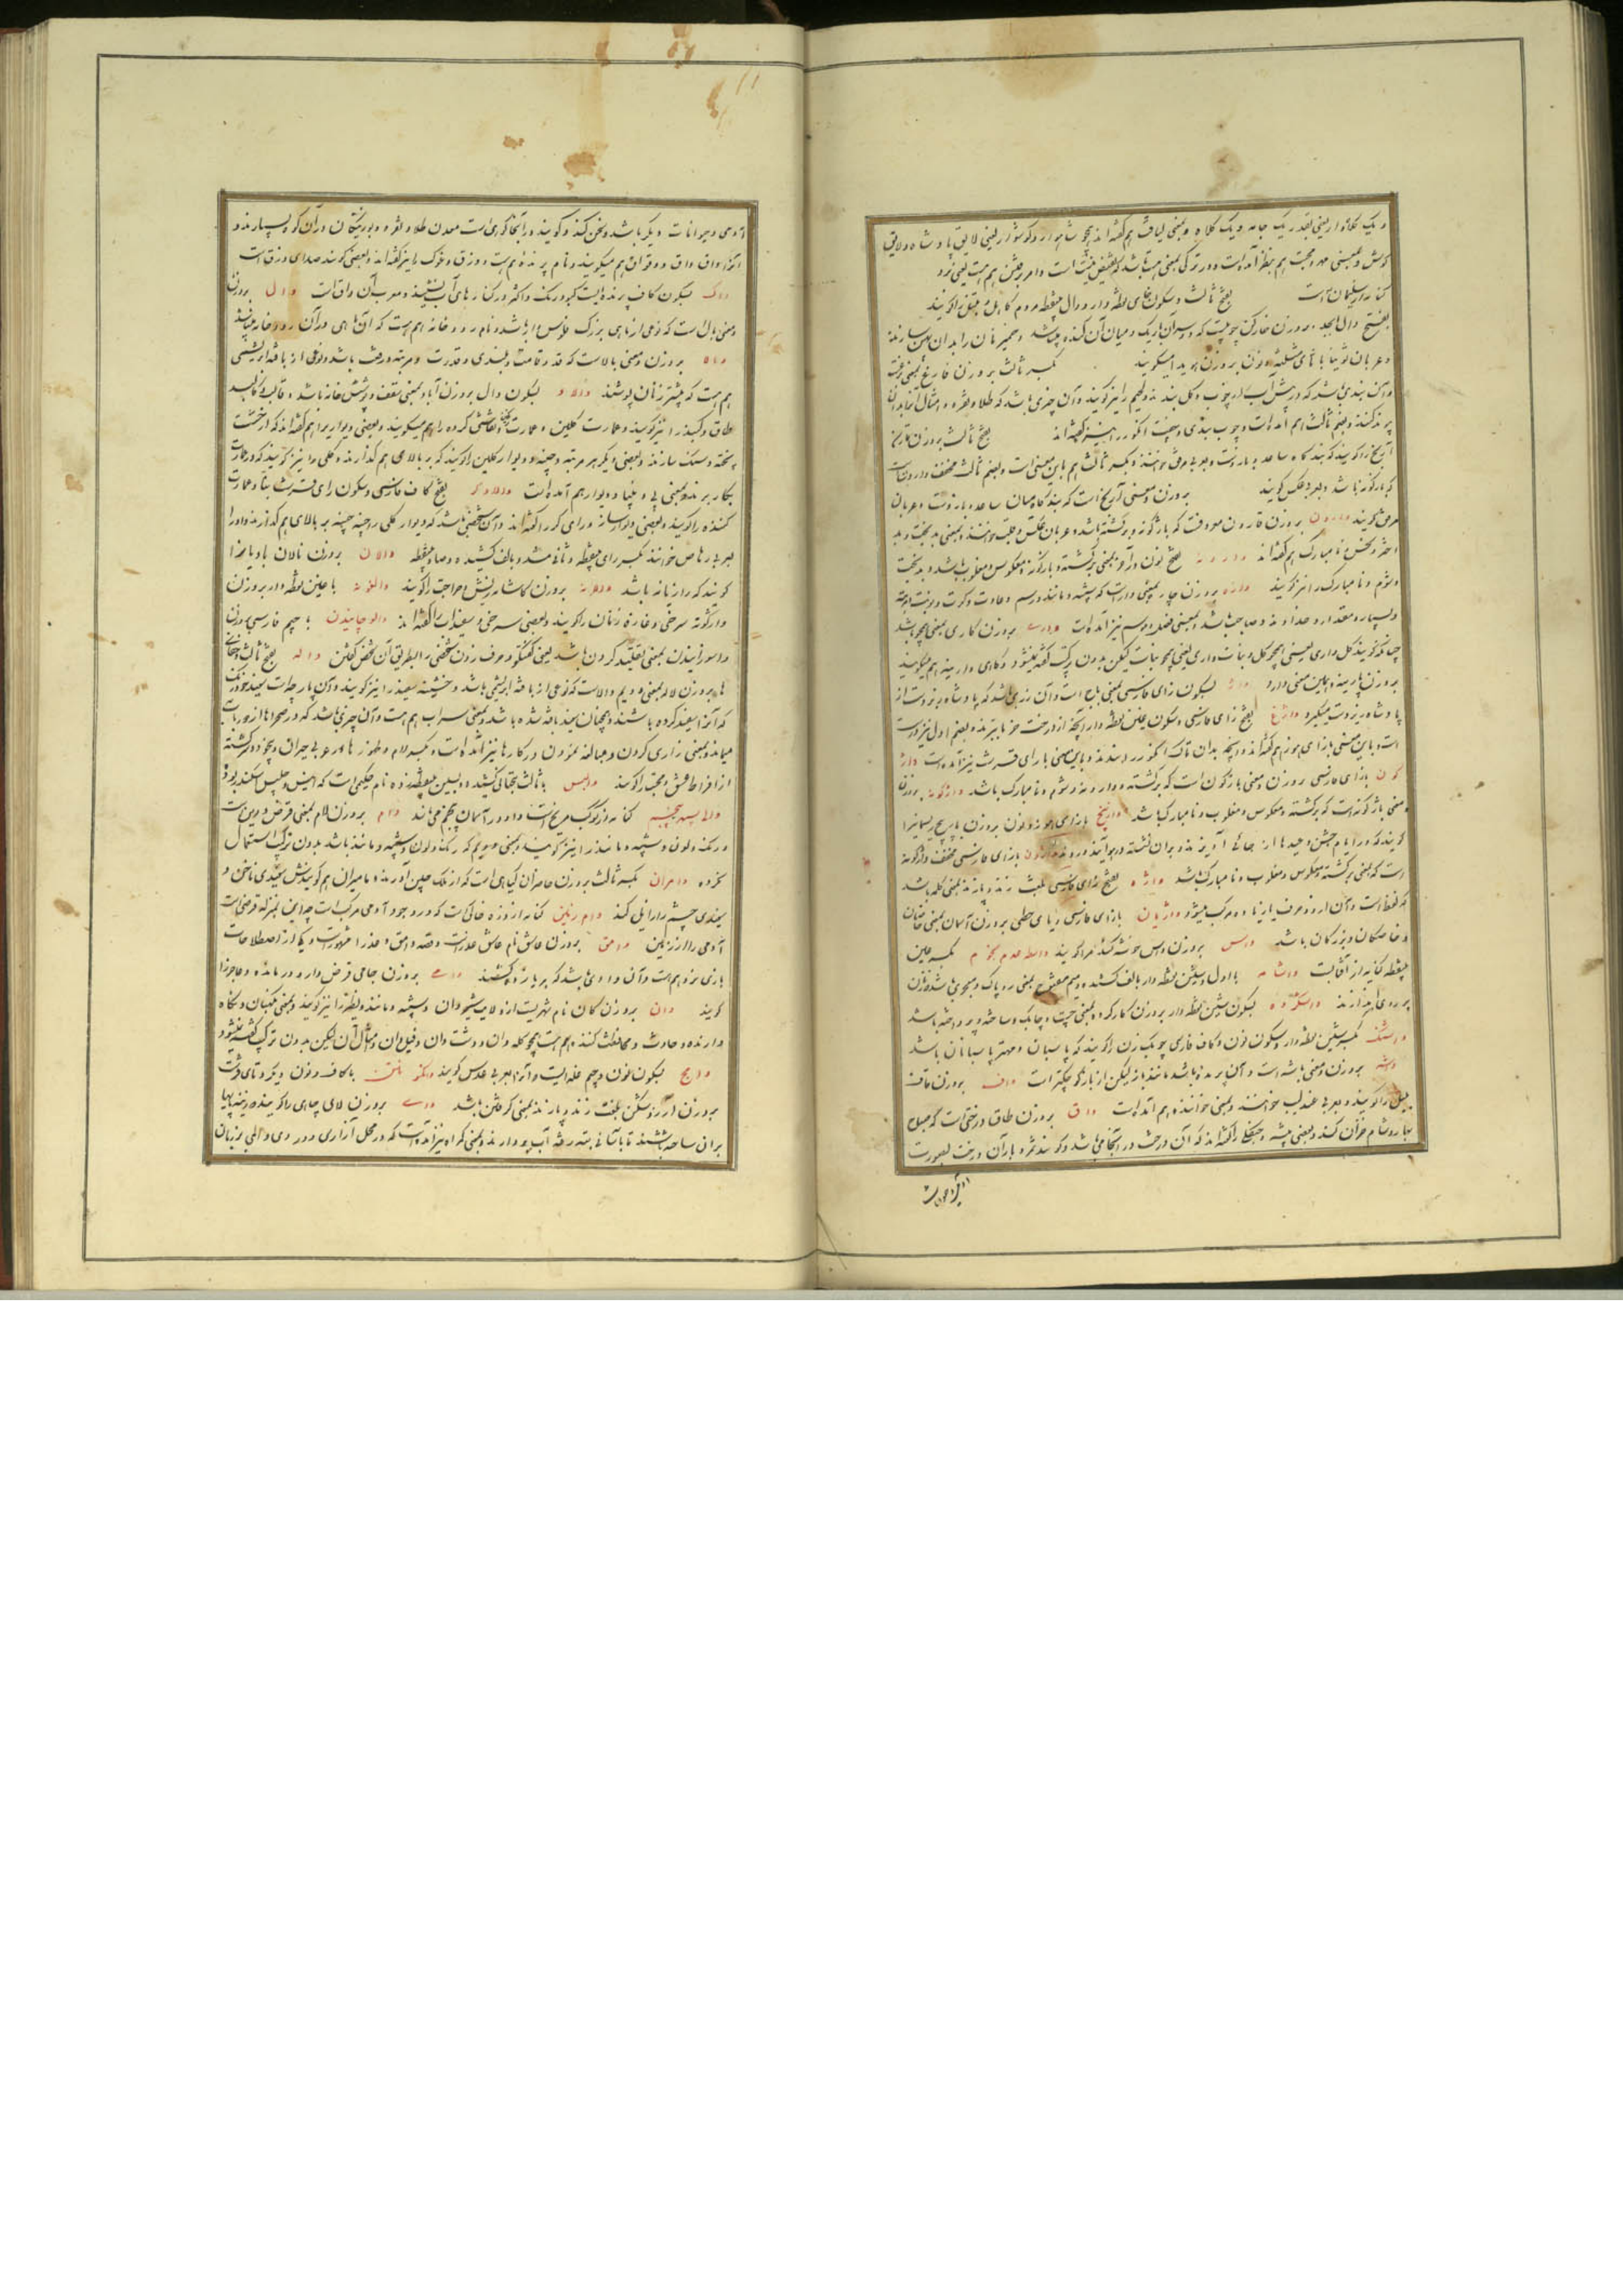 و یک کلاه وار یعنی بقدر یک جامه و یک کلاه و بمعنی لیاقت هم گفته اند همچو شاهوار و گوشوار یعنی لایق پادشاه و لایق
گوش و بمعنی مهر و محبت هم بنظر آمده است و در ترکی بمعنی هست باشد که نقیض نیست است و امر برفتن هم هست یعنی برو
کنایه از سلیمان است بفتح ثالث و سکون خای نقطه دار و دال بینقطه مردم کاهل را گویند
بفتح دال ابجد بروزن خارکن چوبیست که دو سر آن باریک و میان آن گنده میباشد و خمیر نان را بدان پهن سازند
و عربان بای مثلثه و نون بروزن هویدا میگویند بکسر ثالث بروزن فارغ بمعنی
و آن بندی باشد که در پیش آب از چوب و گل بندند و لحیم را نیز گویند و آن چیزی باشد که طلا و نقره و امثال آنرا بدان
پیوند کنند و بضم ثالث هم آمده است و چوب بندی و چفت انگور را نیز گفته اند بفتح ثالث بروزن نارنج
آرنج را گویند که بندگاه ساعد و بازوست و بعربی مرفق خوانند و بکسر ثالث هم باین معنی است و بضم ثالث مخفف وارونه است
که بازگونه باشد و بعربی عکس گویند بروزن و معنی آرنج است که بندگاه میان ساعد و بازوست و عربان
مرفق گویند وارون بروزن قارون معروفست که بازگونه و برگشته باشد و عربان عکس و قلب خوانند و بمعنی بدبخت و بد
اختر و نحس و نامبارک هم گفته اند وارونه بفتح نون در آخر بمعنی برگشته و بازگونه و معکوس و مغلوب باشد و بدبخت
و شوم و نامبارک را نیز گویند واره بروزن چاره بمعنی وار است که شبیه و مانند و رسم و عادت و کرت و نوبت و مرتبه
و بسیار و مقدار و خداوند و صاحب باشد و بمعنی فصل و موسم نیز آمده است واری بروزن کاری بمعنی همچو باشد
چنانکه گویند گل واری یعنی همچو گل و نبات واری یعنی همچو نبات لیکن بدون ترکیب گفته نمیشود
بروزن نارینه و همین معنی دارد واژ بسکون زای فارسی بمعنی باج است و آن زری باشد که پادشاه بزرگ از
پادشاه زیردست میگیرد واژغ بفتح زای فارسی و سکون غین نقطه دار آنچه از درخت خرما ببرند و بضم اول نیز درست
است و باین معنی با زای هوز هم گفته اند و آنچه بدان تاک انگور را بندند و باین معنی با رای قرشت نیز آمده است واژ
گون بازای فارسی بروزن و معنی بازگون است که برگشته و وارونه و شوم و نامبارک باشد واژگونه بروزن
و معنی بازگونه است که برگشته و معکوس و مغلوب و نامبارک باشد وازنیج بازای هوز و نون بروزن بازیچ ریسمانی را
گویند که در ایام جشن و عید ها از جائی آویزند و بران نشسته در هوا آیند و روند واژون بازای فارسی مخفف واژگونه
است که بمعنی برگشته و معکوس و مقلوب و نامبارک باشد واژه بفتح زای فارسی بلغت زند و پازند بمعنی کلمه باشد
که لفظ است و آن از دو حرف یا زیاده مرکب میشود واژیان بازای فارسی و یای حطی بروزن آسمان بمعنی خاصان
و خاصگان و بزرگان باشد واس بروزن داس خوشه گندم را گویند واسطه بکسر عین
بینقطه کنایه از آفتابست واشامه با اول و شین نقطه دار بالف کشیده و میم مفتوح بمعنی روپاک و معجری باشد که زنان
بر روی اندازند واشکرده بسکون شین نقطه دار بروزن کارکرده بمعنی چست و چابک و ساخته و پرداخته باشد
واشنگ بکسر شین نقطه دار و سکون نون و کاف فارسی چوبک زن را گویند که پاسبان و مهتر پاسبانان باشد
واشه بروزن و معنی باشه است و آن پرنده باشد مانند باز لیکن از باز کوچکتر است واف بروزن قاف
بلبل را گویند و بعربی عندلیب خوانند و بمعنی خواننده هم آمده است واق بروزن طاق درختی است که صباح
بهار و شام خزان کند و بعضی بیشه و جنگلی را گفته اند که آن درخت در آنجا میباشد و گویند ثمر و بار آن درخت بصورت
آدمی و حیوانات دیگر باشد و سخن کند و گویند در آنجا کوهی است معدن طلا و نقره و بوزینگان در آن کوه بسیارند و
آنرا واق واق و وقواق هم میگویند و نام پرنده هم هست و وزق و غوک را نیز گفته اند و بعضی گویند صدای وزق است
واک بسکون کاف پرنده ایست کبود رنگ و اکثر در کنار های آب نشیند و معرب آن واق است وال بروزن
و معنی بال است که نوعی از ماهی بزرگ فلوس دار باشد و نام رودخانه هم هست که آن ماهی در آن رودخانه میباشد
والا بروزن و معنی بالاست که قد و قامت و بلندی و قدرت و مرتبه و رفعت باشد و نوعی از بافته ابریشمی
هم هست که بیشتر زنان پوشند والاد بسکون دال بروزن آباد بمعنی سقف و پوشش خانه باشد و قالب و کالبد
طاق و گنبد را نیز گویند و عمارت گلین و عمارت نقاشی کرده را هم میگویند و بعضی دیواری را هم گفته اند که از خشت
پخته و سنگ سازند و بعضی دیگر هر مرتبه و چینه دیوار گلین را گویند که بر بالای هم گذارند و گلی را نیز گویند که در عمارت
بکار برند و بمعنی پی و بنیاد دیوار هم آمده است والادگر بفتح کاف فارسی و سکون رای قرشت بنا و عمارت
کننده را گویند و بعضی دیوار ساز و رای گر را گفته اند و آن شخصی باشد که دیوار گلی را چینه چینه بر بالای هم گذارد و او را
بعربی رهاص خوانند بکسر رای بینقطه و ثانی مشدد و بالف کشیده و صاد بینقطه والان بروزن نالان بادیان را
گویند که رازیانه باشد والانه بروزن کاشانه ریش و جراحت را گویند والغونه با غین نقطه دار بروزن
وارگونه سرخی و غازه زنان را گویند و بعضی سرخی و سفیداب را گفته اند والوچانیدن با جیم فارسی بروزن
واسوزانیدن بمعنی تقلید کردن باشد یعنی گفتگو و حرف زدن شخصی را بطریق آن شخص گفتن واله بفتح ثالث و خفای
ها بروزن لاله بمعنی دویم والاست که نوعی از بافته ابریشمی باشد و خشینه سفید را نیز گویند و آن پارچه است
که آنرا سفید کرده باشند و همچنان سفید بافته شده باشد و بمعنی سراب هم هست و آن چیزی باشد که در صحراها از دور بآب
میماند و بمعنی زاری کردن و مبالغه نمودن در کارها نیز آمده است و بکسر لام و ظهور ها در عربی حیران و بیخود گشته
از افراط عشق و محبت را گویند والیس با ثالث بتحتانی کشیده و بسین بینقطه زده نام حکیمی است که انیس و جلیس سکندر بود
والی سپهر پنجم کنایه از کوکب مریخ است و او در آسمان پنجم میباشد وام بروزن لام بمعنی قرض و دین است
و رنگ و لون و شبیه و مانند را نیز گویند و بمعنی دویم که رنگ و لون و شبیه و مانند باشد بدون ترکیب استعمال
نکرده وامران بکسر ثالث بروزن حاضران گیاهی است که از ملک چین آورند و مامیران هم گویندش سفیدی ناخن و
سفیدی چشم را زایل کند وام زمین کنایه از ذره خاکی است که در وجود آدمی مرکب است چه این بمنزله قرضی است
آدمی را از زمین وامق بروزن عاشق نام عاشق عذراست و قصه وامق و عذرا مشهور است و یکی از اصطلاحات
بازی نرد هم هست و آن داوی باشد که بر یازده کشند وامی بروزن جامی قرض دار و درمانده و عاجز را
گویند وان بروزن کان نام شهریست از ولایت شیروان و شبیه و مانند و نظیر را نیز گویند و بمعنی نگهبان و نگاه
دارنده و حارث و محافظت کننده هم هست همچو گله وان و دشت وان و فیلوان و امثال آن لیکن بدون ترکیب گفته نمیشود
وانج بسکون نون و جیم غله ایست و آنرا بعربی عدس گویند وانگونتن با کاف و نون دیگر و تای قرشت
بروزن بلغت زند و پازند بمعنی گرفتن باشد وای بروزن لای چاهی را گویند که زینه پایها
بران ساخته باشند تا بآسانی بته رفته آب بردارند و بمعنی گمراه نیز آمده است که در محل آزاری و دردی و المی بر زبان